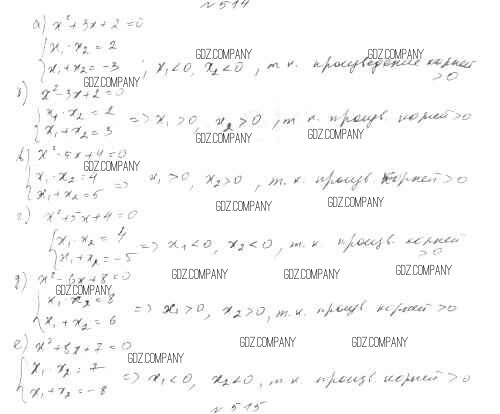 №514
а) x²+3x+2=0
{ x₁·x₂=2
{ x₁+x₂=-3 ; x₁<0, x₂<0, т.к. произведение корней >0
GDZ.COMPANY GDZ.COMPANY
GDZ.COMPANY
б) x²-3x+2=0
{ x₁·x₂=2
{ x₁+x₂=3 => x₁>0, x₂>0, т.к. произв. корней >0
GDZ.COMPANY GDZ.COMPANY
в) x²-5x+4=0
{ x₁·x₂=4
{ x₁+x₂=5 => x₁>0, x₂>0, т.к. произв. корней >0
GDZ.COMPANY
GDZ.COMPANY GDZ.COMPANY
г) x²+5x+4=0
{ x₁·x₂=4
{ x₁+x₂=-5 => x₁<0, x₂<0, т.к. произв. корней >0
GDZ.COMPANY GDZ.COMPANY GDZ.COMPANY
д) x²-6x+8=0
GDZ.COMPANY
{ x₁·x₂=8
{ x₁+x₂=6 => x₁>0, x₂>0, т.к. произв. корней >0
GDZ.COMPANY GDZ.COMPANY
е) x²+8x+7=0
GDZ.COMPANY
{ x₁·x₂=7
{ x₁+x₂=-8 => x₁<0, x₂<0, т.к. произв. корней >0
GDZ.COMPANY GDZ.COMPANY
№515